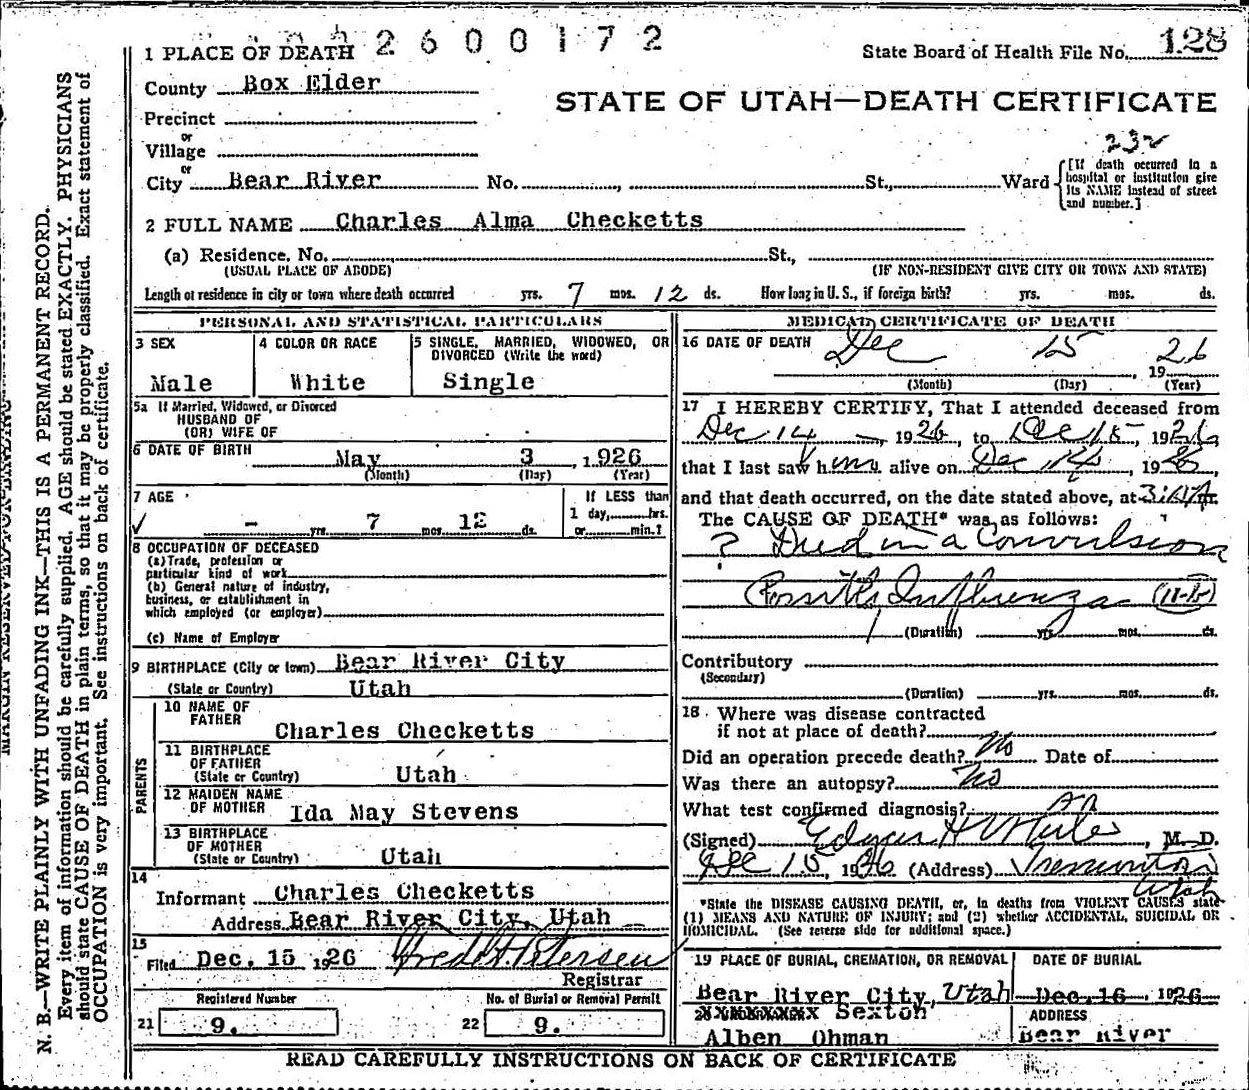 2600172
1 PLACE OF DEATH
State Board of Health File No. 128
County Box Elder
STATE OF UTAH—DEATH CERTIFICATE
Precinct
or
Village
232
or
City Bear River No. , St., Ward
[If death occurred in a hospital or institution give its NAME instead of street and number.]
2 FULL NAME Charles Alma Checketts
(a) Residence. No. St.,
(USUAL PLACE OF ABODE) (IF NON-RESIDENT GIVE CITY OR TOWN AND STATE)
Length of residence in city or town where death occurred yrs. 7 mos. 12 ds. How long in U. S., if foreign birth? yrs. mos. ds.
PERSONAL AND STATISTICAL PARTICULARS
3 SEX
Male
4 COLOR OR RACE
White
5 SINGLE, MARRIED, WIDOWED, OR
DIVORCED (Write the word)
Single
5a If Married, Widowed, or Divorced
HUSBAND OF
(OR) WIFE OF
6 DATE OF BIRTH
May 3 , 1926
(Month) (Day) (Year)
7 AGE
— yrs. 7 mos. 12 ds.
If LESS than
1 day, hrs.
or min.?
8 OCCUPATION OF DECEASED
(a) Trade, profession or
particular kind of work
(b) General nature of industry,
business, or establishment in
which employed (or employer)
(c) Name of Employer
9 BIRTHPLACE (City or town) Bear River City
(State or Country) Utah
PARENTS
10 NAME OF
FATHER
Charles Checketts
11 BIRTHPLACE
OF FATHER
(State or Country) Utah
12 MAIDEN NAME
OF MOTHER Ida May Stevens
13 BIRTHPLACE
OF MOTHER
(State or Country) Utah
14
Informant Charles Checketts
Address Bear River City, Utah
15
Filed Dec. 15 1926 Fred H. Petersen
Registrar
Registered Number
21 9.
No. of Burial or Removal Permit
22 9.
MEDICAL CERTIFICATE OF DEATH
16 DATE OF DEATH
Dec 15 , 1926
(Month) (Day) (Year)
17 I HEREBY CERTIFY, That I attended deceased from
Dec 14 , 1926, to Dec 15, 1926
that I last saw him alive on Dec 14 , 1926
and that death occurred, on the date stated above, at
The CAUSE OF DEATH* was as follows:
? Died in a Convulsion
Possibly Influenza (11-b)
(Duration) yrs. mos. ds.
Contributory
(Secondary)
(Duration) yrs. mos. ds.
18 Where was disease contracted
if not at place of death?
Did an operation precede death? No Date of
Was there an autopsy? No
What test confirmed diagnosis?
(Signed) Edgar H White , M. D.
Dec 15, 1926 (Address) Tremonton
Utah
*State the DISEASE CAUSING DEATH, or, in deaths from VIOLENT CAUSES state
(1) MEANS AND NATURE OF INJURY; and (2) whether ACCIDENTAL, SUICIDAL OR
HOMICIDAL. (See reverse side for additional space.)
19 PLACE OF BURIAL, CREMATION, OR REMOVAL
Bear River City, Utah
DATE OF BURIAL
Dec. 16 1926
20 XXXXXXXXX Sexton
Alben Ohman
ADDRESS
Bear River
READ CAREFULLY INSTRUCTIONS ON BACK OF CERTIFICATE
N. B.—WRITE PLAINLY WITH UNFADING INK—THIS IS A PERMANENT RECORD.
Every item of information should be carefully supplied. AGE should be stated EXACTLY. PHYSICIANS
should state CAUSE OF DEATH in plain terms, so that it may be properly classified. Exact statement of
OCCUPATION is very important. See instructions on back of certificate.